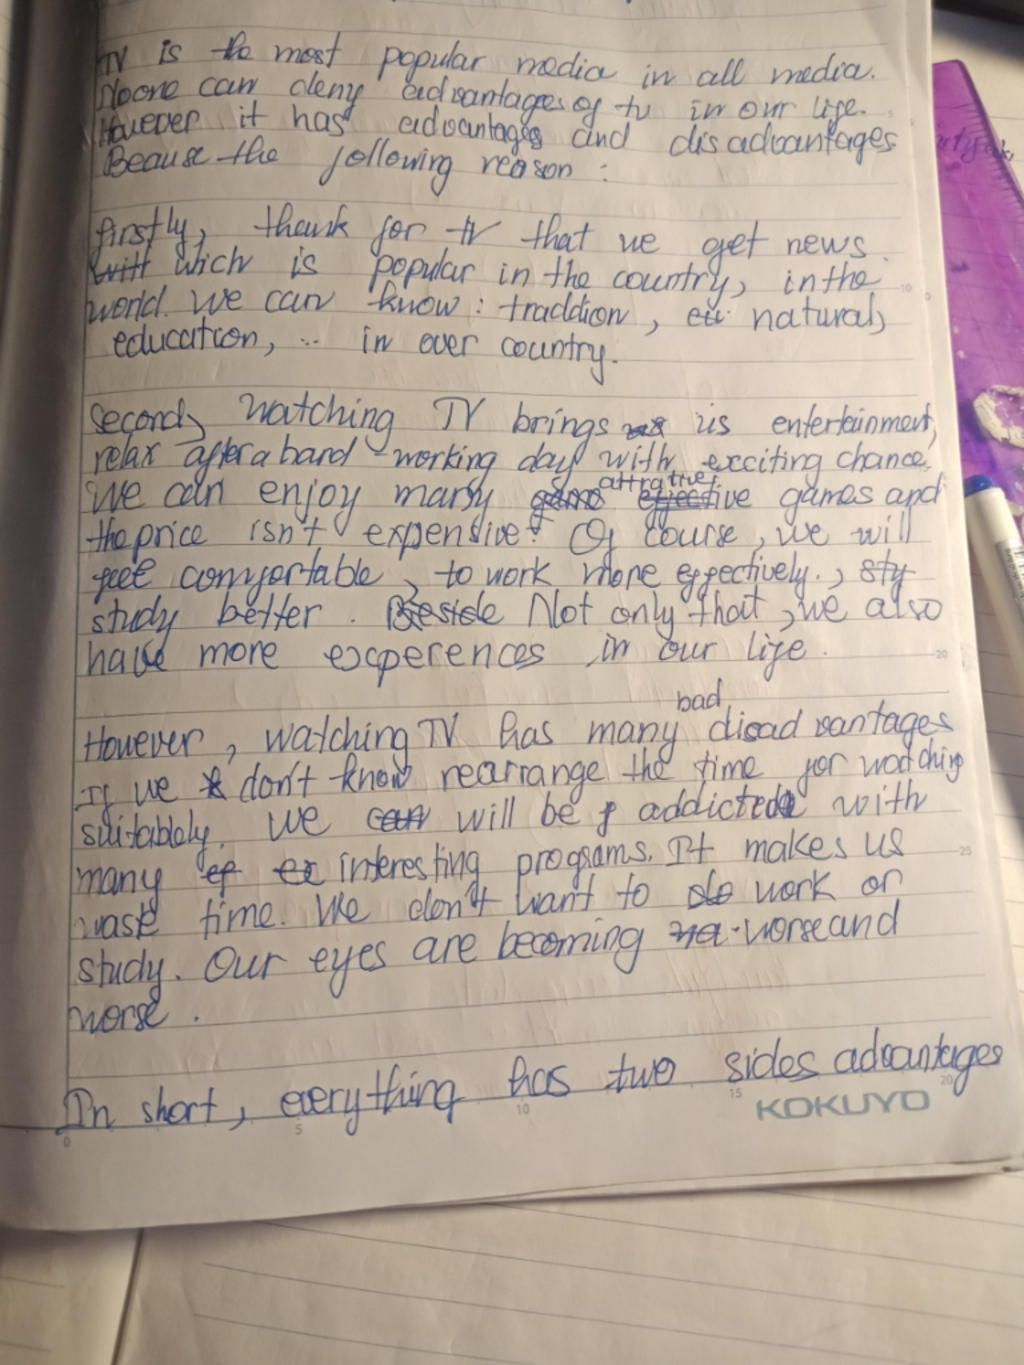 TV is the most popular media in all media.
Noone can deny advantages of tv in our life.
However it has advantages and disadvantages
Beause the following reason :
firstly, thank for tv that we get news
wich is popular in the country, in the
world. We can know : traddion, natural,
education, ... in over country.
Second, Watching TV brings us entertainment,
relax after a hard working day with exciting chance.
attrative
We can enjoy many games and
the price isn't expensive. Of course, we will
feel comfortable, to work more effectively., sty
study better. Not only that, we also
have more experences in our life.
bad
However, watching TV has many disadvantages
If we don't know rearrange the time for watching
suitablely. We will be addicted with
many interesting programs. It makes us
waste time. We don't want to work or
study. Our eyes are becoming worse and
worse.
In short, everything has two sides advantages
KOKUYO